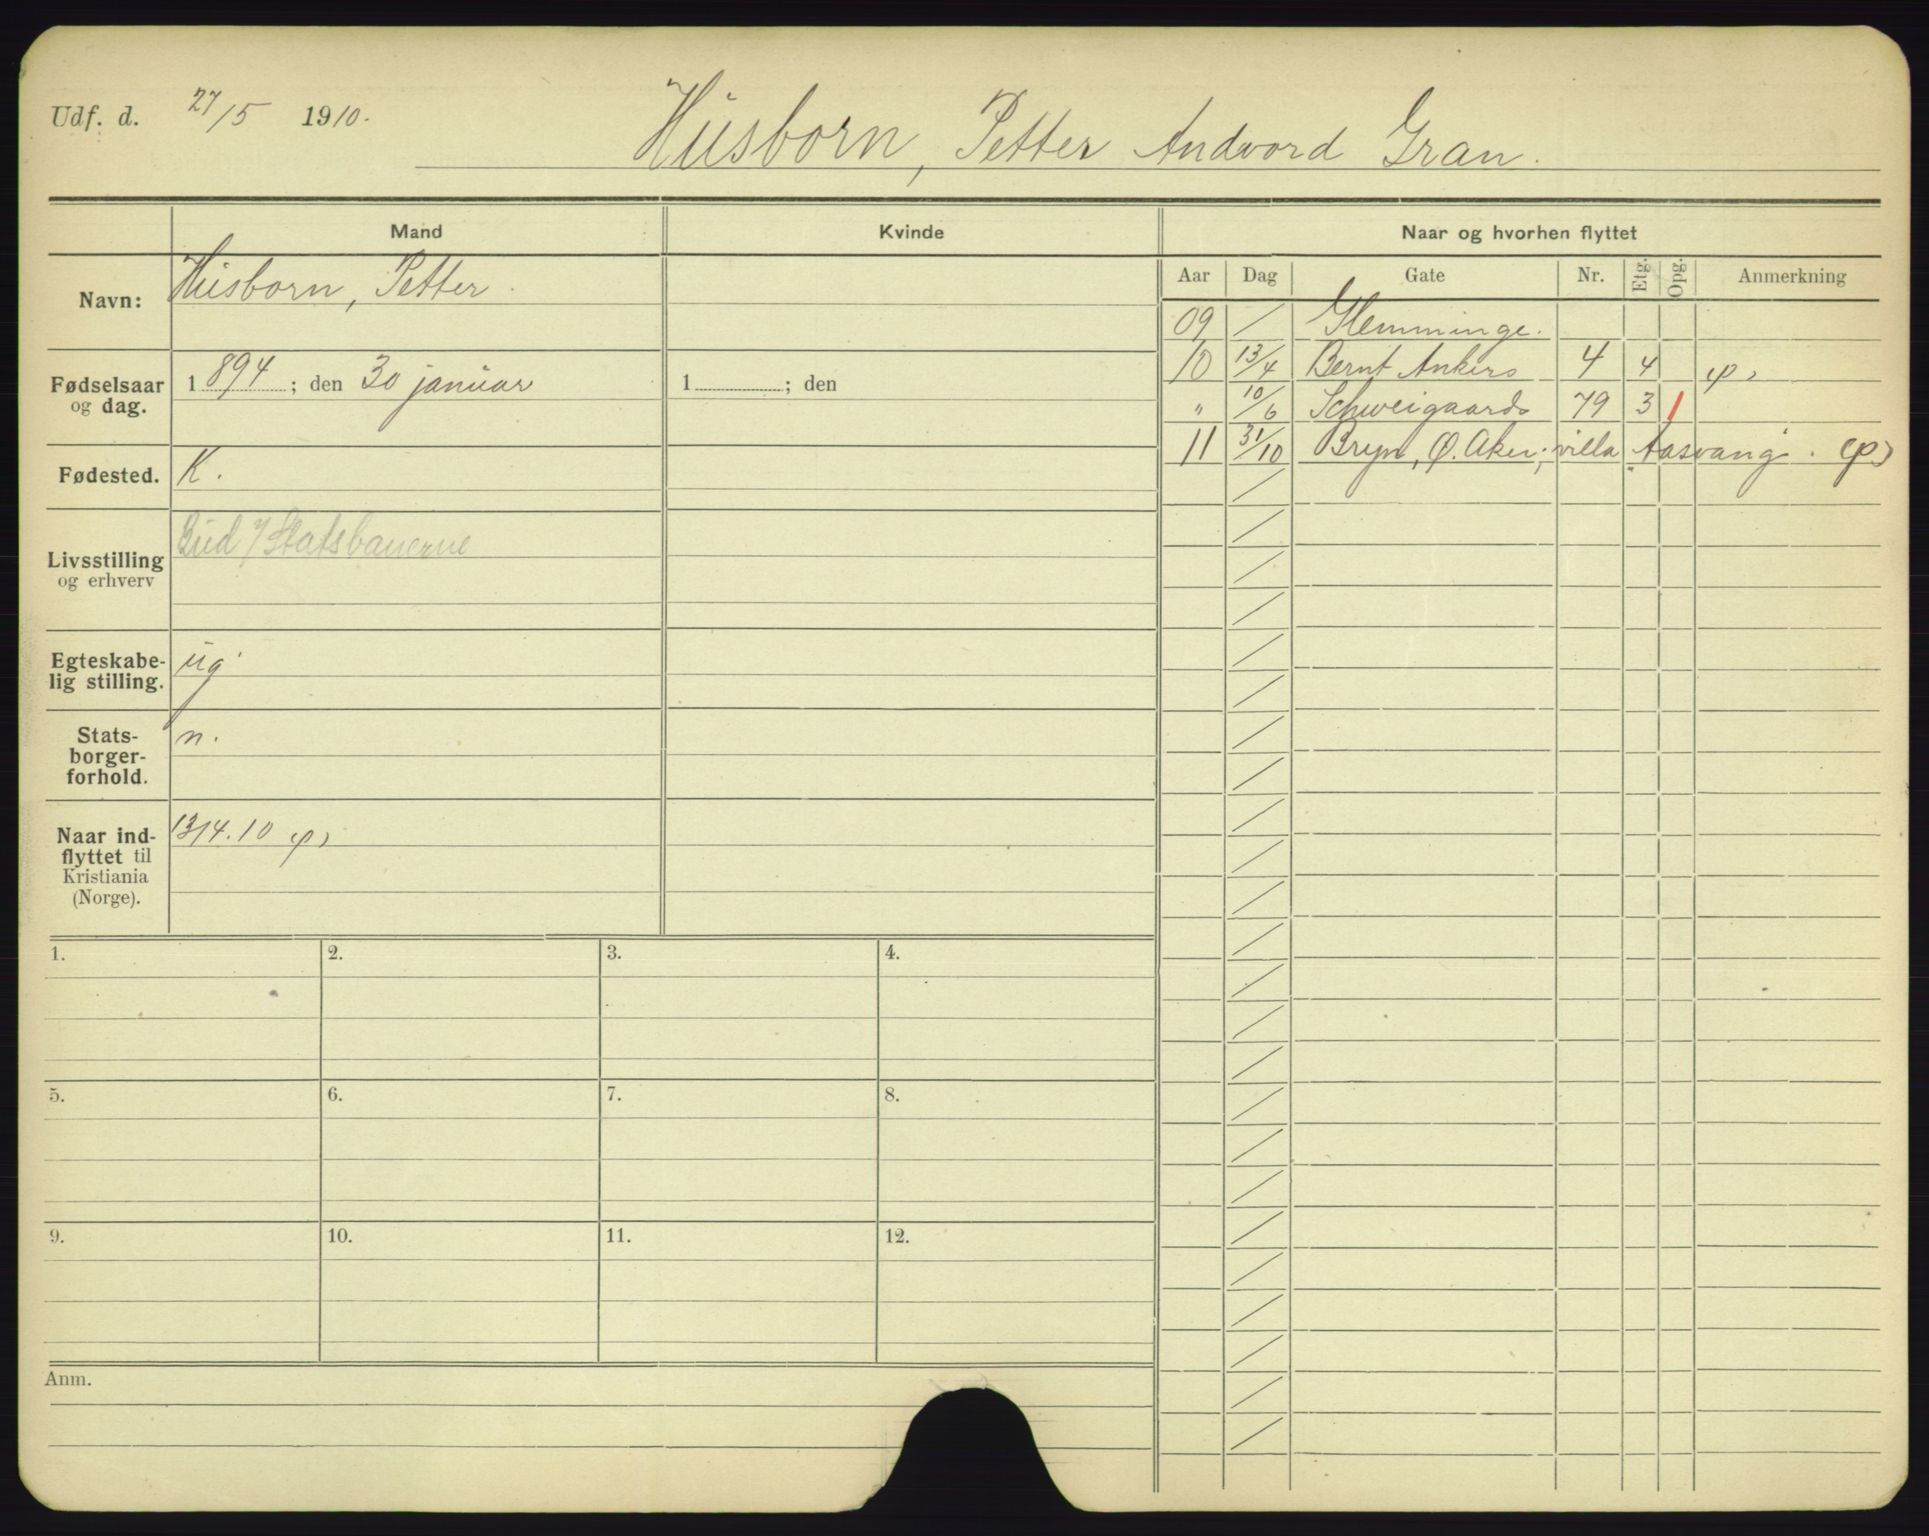 Udf. d. 27/5 1910.
Husborn, Petter Andvord Gran.
Mand
Kvinde
Naar og hvorhen flyttet
Aar Dag Gate Nr. Etg. Opg. Anmerkning
Navn: Husborn, Petter.
Fødselsaar og dag. 1894; den 30 januar
1 ; den
Fødested. K.
Livsstilling og erhverv Bud v/ Statsbanerne
Egteskabe-
lig stilling. ug.
Stats-
borger-
forhold. n.
Naar ind-
flyttet til
Kristiania
(Norge). 13/4.10 (p)
09 / Glemminge.
10 13/4 Bernt Ankers 4 4 (p)
" 10/6 Schweigaards 79 3 1
11 31/10 Bryn, Ø. Aker, villa "Aasvang". (p)
1. 2. 3. 4.
5. 6. 7. 8.
9. 10. 11. 12.
Anm.